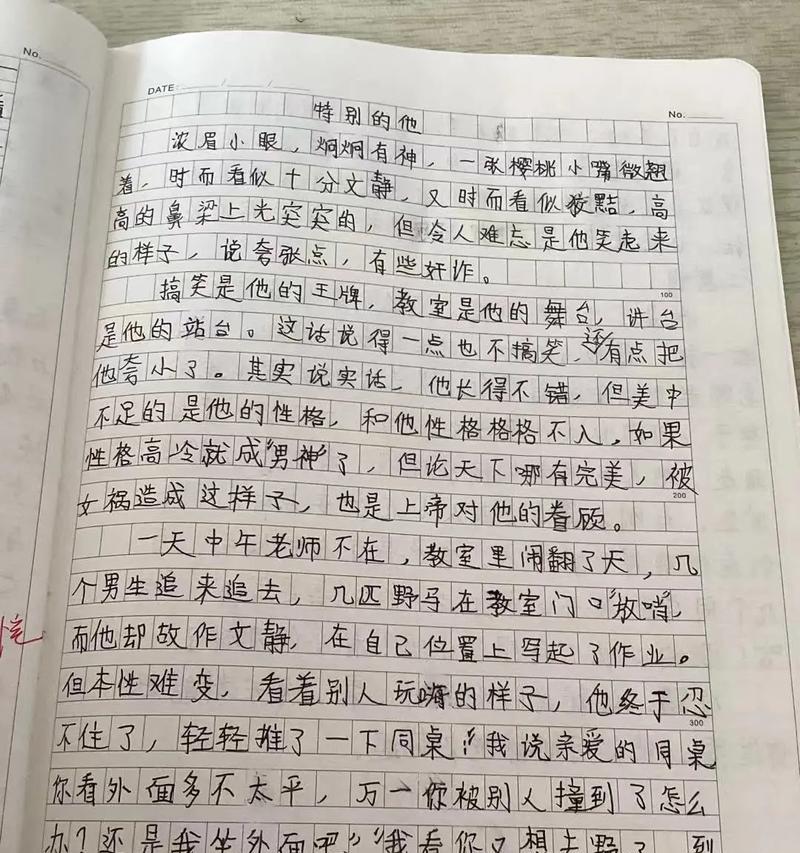 No.
DATE: / /
No.
特别的他
浓眉小眼，炯炯有神，一张樱桃小嘴微翘
着，时而看似十分文静，又时而看似狡黠，高
高的鼻梁上光突突的，但令人难忘是他笑起来
的样子，说夸张点，有些奸诈。
100
搞笑是他的王牌，教室是他的舞台，讲台
是他的站台。这话说得一点也不搞笑，还有点把
他夸小了。其实说实话，他长得不错，但美中
不足的是他的性格，和他性格格格不入，如果
性格高冷就成“男神”了，但论天下哪有完美，被
200
女祸造成这样子，也是上帝对他的眷顾。
一天中午老师不在，教室里闹翻了天，几
个男生追来追去，几匹野马在教室门口“放哨”，
而他却故作文静，在自己位置上写起了作业。
但本性难变，看着别人玩嗨的样子，他终于忍
300
不住了，轻轻推了一下同桌：“我说亲爱的同桌
你看外面多不太平，万一你被别人撞到了怎么
办？还是我坐外面吧”“我看你又想去野了，到